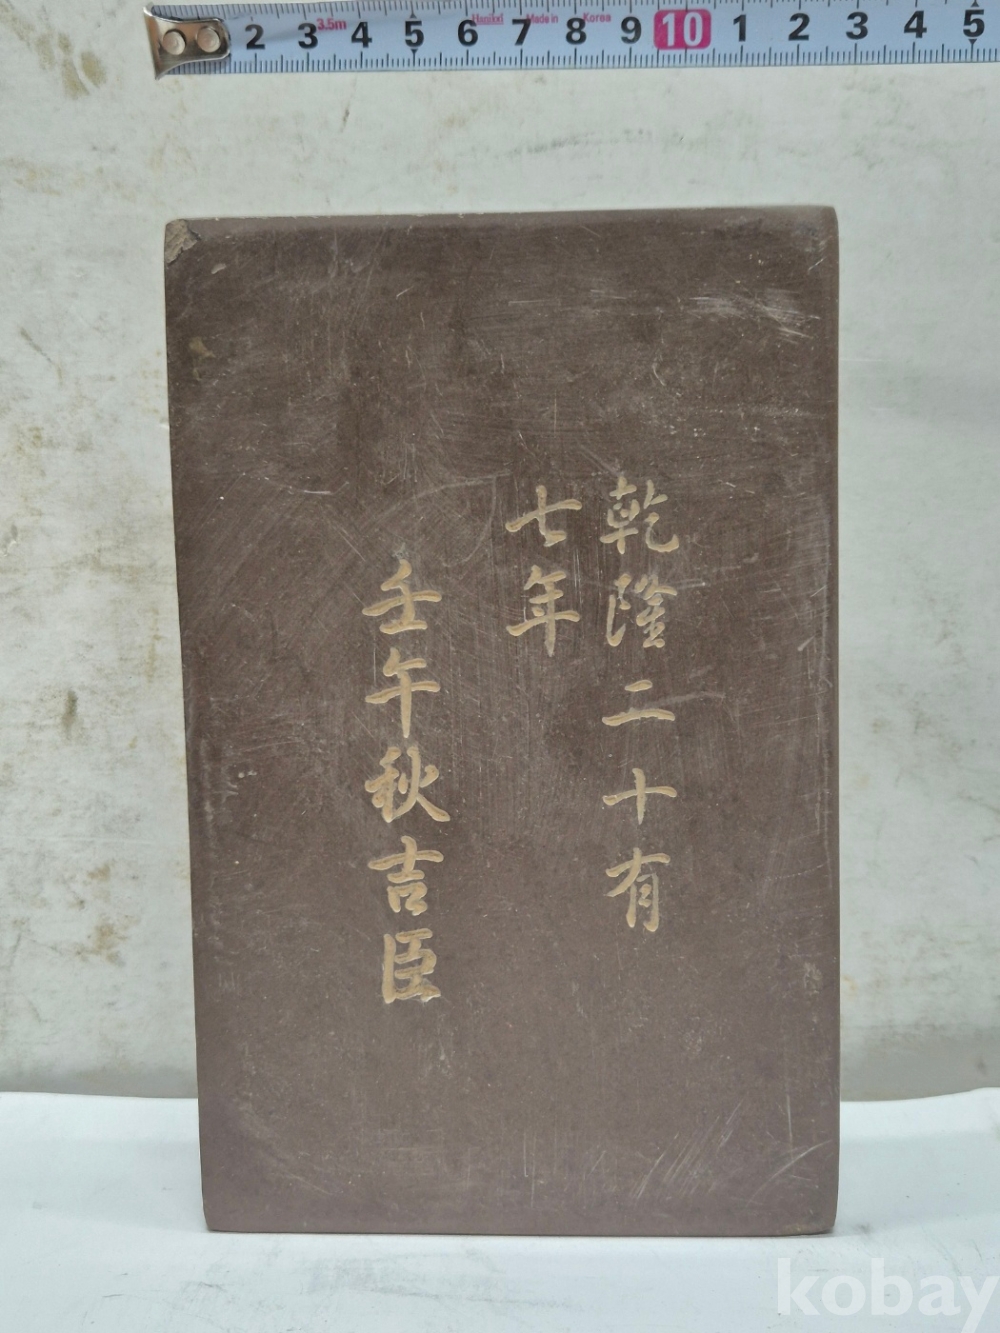 2 3 3.5m 4 5 6 7 8 9 10 1 2 3 4 5
Made in Korea
乾隆二十有
七年
壬午秋吉臣
kobay